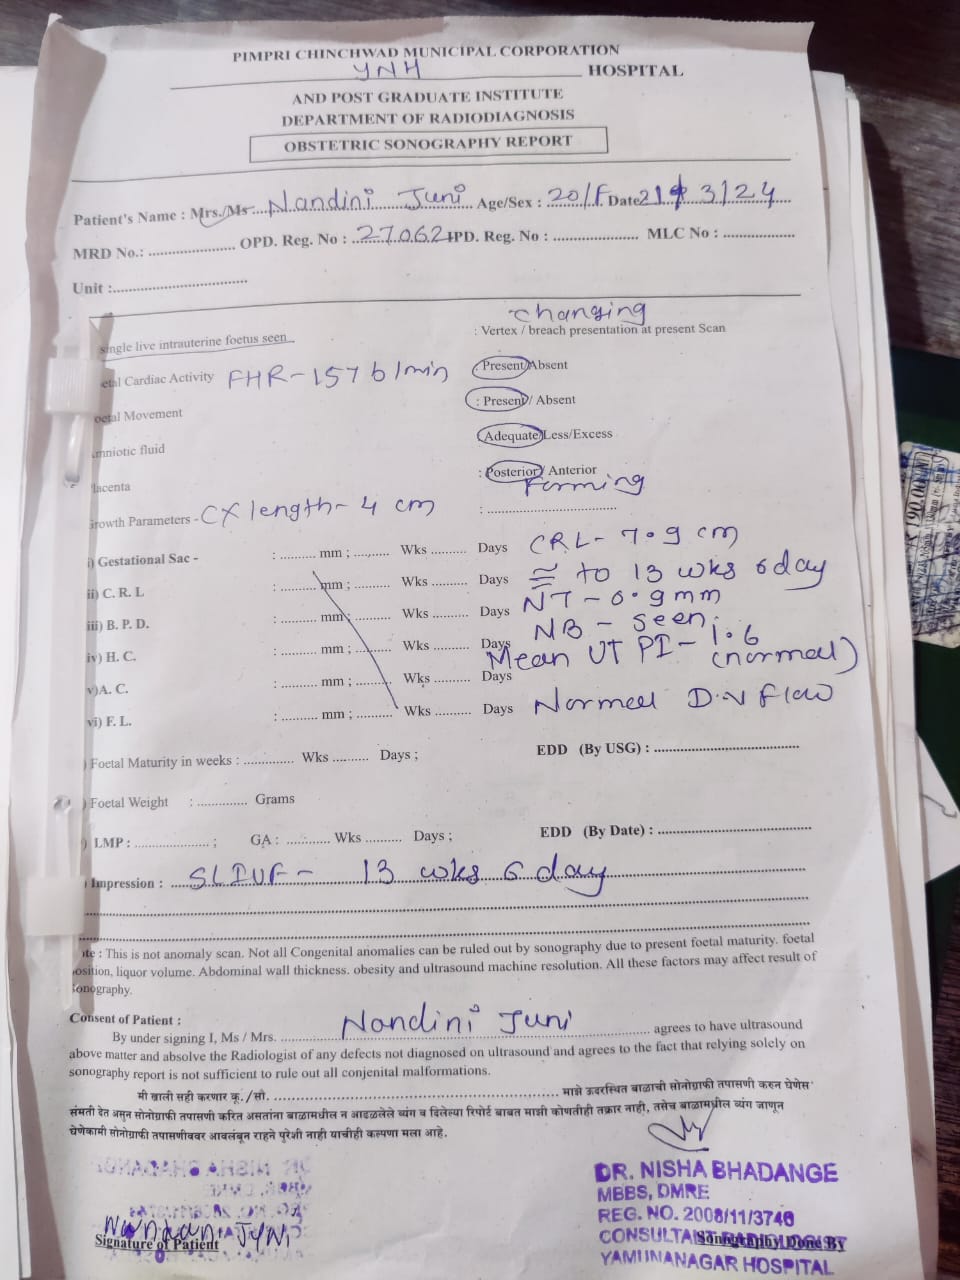 PIMPRI CHINCHWAD MUNICIPAL CORPORATION
YNH HOSPITAL
AND POST GRADUATE INSTITUTE
DEPARTMENT OF RADIODIAGNOSIS
OBSTETRIC SONOGRAPHY REPORT
Patient's Name : Mrs./Ms.... Nandini Juni Age/Sex : 20/F Date 21 3/24
MRD No.: .................... OPD. Reg. No : 27062 IPD. Reg. No : .................... MLC No : ..................
Unit :................................
changing
single live intrauterine foetus seen : Vertex / breach presentation at present Scan
etal Cardiac Activity FHR - 157 b/min : Present/Absent
oetal Movement : Present / Absent
mniotic fluid Adequate/Less/Excess
lacenta : Posterior/ Anterior
Forming
Growth Parameters - CX length - 4 cm : ..................................
i) Gestational Sac - : .......... mm ; .......... Wks .......... Days CRL - 7.9 cm
ii) C. R. L : .......... mm ; .......... Wks .......... Days ≅ to 13 wks 6 day
iii) B. P. D. : .......... mm ; .......... Wks .......... Days NT - 0.9mm
iv) H. C. : .......... mm ; .......... Wks .......... Days NB - seen.
v)A. C. : .......... mm ; .......... Wks .......... Days Mean UT PI - 1.6 (normal)
vi) F. L. : .......... mm ; .......... Wks .......... Days Normal D.V flow
) Foetal Maturity in weeks : .............. Wks .......... Days ; EDD (By USG) : ........................................
) Foetal Weight : .............. Grams
) LMP : ..................... ; GA : ............ Wks .......... Days ; EDD (By Date) : ........................................
) Impression : SLIUF - 13 wks 6 day
te : This is not anomaly scan. Not all Congenital anomalies can be ruled out by sonography due to present foetal maturity. foetal
osition, liquor volume. Abdominal wall thickness. obesity and ultrasound machine resolution. All these factors may affect result of
Sonography.
Consent of Patient :
By under signing I, Ms / Mrs. Nandini Juni agrees to have ultrasound
above matter and absolve the Radiologist of any defects not diagnosed on ultrasound and agrees to the fact that relying solely on
sonography report is not sufficient to rule out all conjenital malformations.
मी खाली सही करणार कू./सौ. ........................................ माझे ऊदरस्थित बाळाची सोनोग्राफी तपासणी करुन घेणेस
संमती देत असुन सोनोग्राफी तपासणी करित असतांना बाळामधील न आढळलेले व्यंग व दिलेल्या रिपोर्ट बाबत माझी कोणतीही तक्रार नाही, तसेच बाळामधील व्यंग जाणून
घेणेकामी सोनोग्राफी तपासणीववर आवलंबून राहने पुरेशी नाही याचीही कल्पणा मला आहे.
DR. NISHA BHADANGE
MBBS, DMRE
REG. NO. 2008/11/3746
CONSULTANT RADIOLOGIST
Signature of Patient Sonography Done By
YAMUNANAGAR HOSPITAL